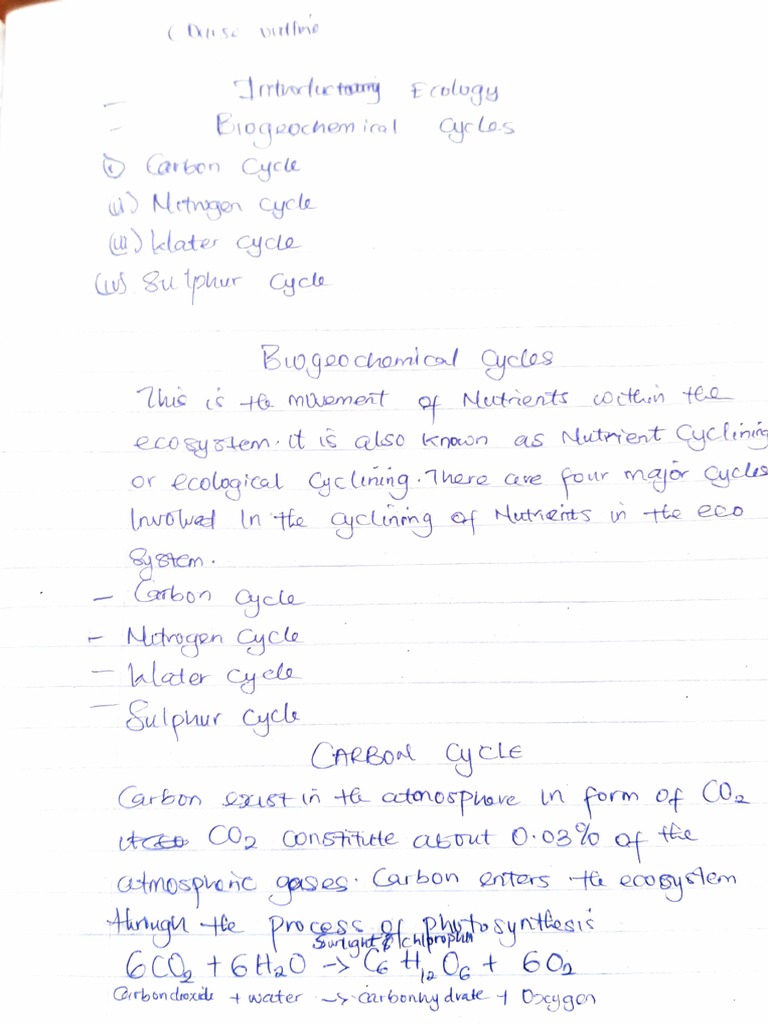 Course outline
- Introductory Ecology
- Biogeochemical Cycles
(i) Carbon Cycle
(ii) Nitrogen Cycle
(iii) Water Cycle
(iv) Sulphur Cycle
Biogeochemical Cycles
This is the movement of Nutrients within the
ecosystem. it is also known as Nutrient Cyclining
or ecological Cyclining. There are four major cycles
Involved In the cyclining of Nutrients in the eco
system.
- Carbon Cycle
- Nitrogen Cycle
- Water Cycle
- Sulphur Cycle
CARBON CYCLE
Carbon exist in the atmosphere in form of CO2
CO2 constitute about 0.03% of the
atmospheric gases. Carbon enters the ecosystem
through the process of photosynthesis
Sunlight &
6CO2 + 6H2O -> C6H12O6 + 6O2
Carbondioxide + water -> carbonhydrate + Oxygen